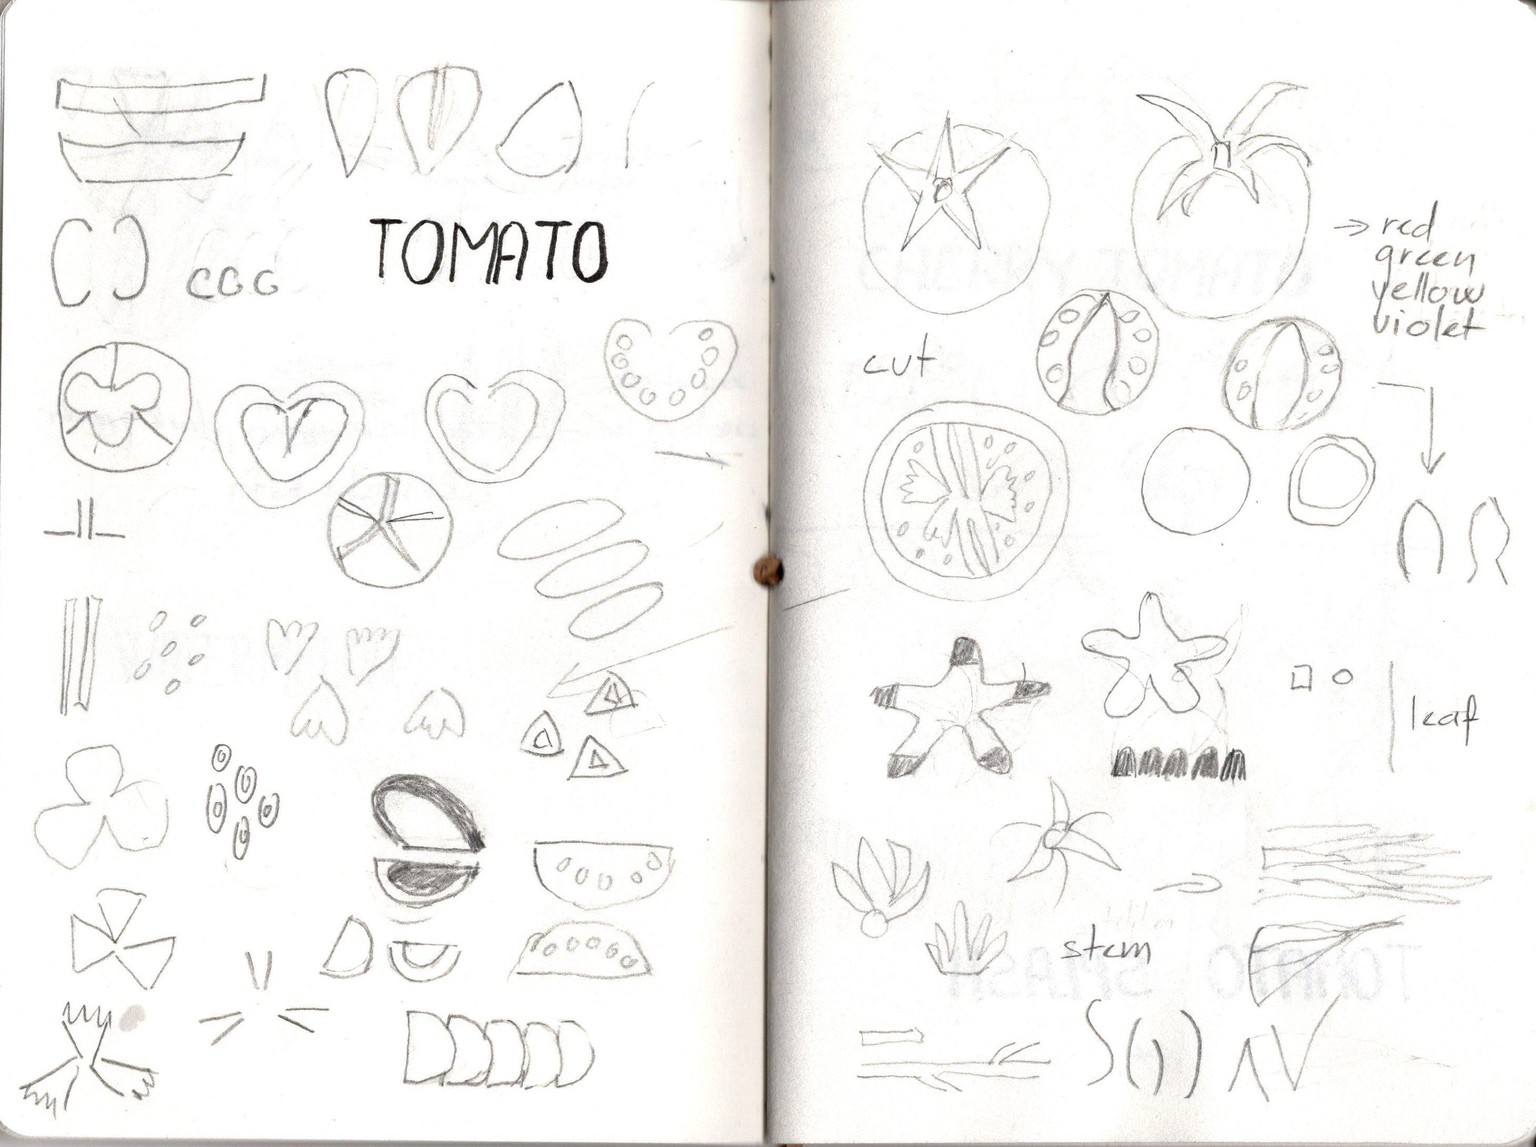 TOMATO
→ red
green
yellow
violet
cut
leaf
stem
TOMATO SPLASH